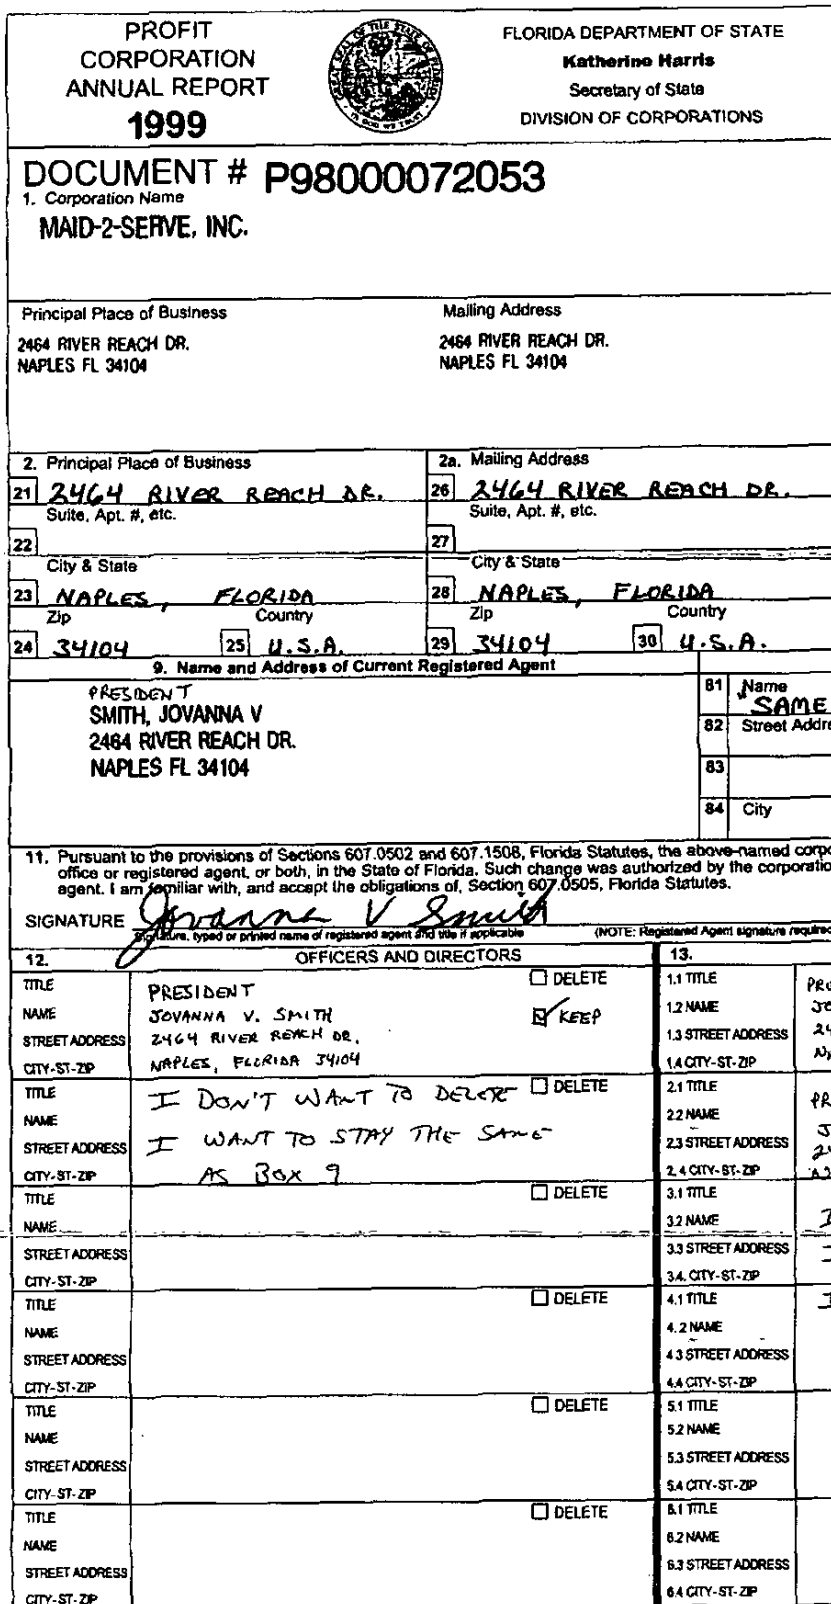 PROFIT
CORPORATION
ANNUAL REPORT
1999
FLORIDA DEPARTMENT OF STATE
Katherine Harris
Secretary of State
DIVISION OF CORPORATIONS
DOCUMENT # P98000072053
1. Corporation Name
MAID-2-SERVE, INC.
Principal Place of Business
2464 RIVER REACH DR.
NAPLES FL 34104
Mailing Address
2464 RIVER REACH DR.
NAPLES FL 34104
2. Principal Place of Business
21 2464 RIVER REACH DR.
Suite, Apt. #, etc.
22
City & State
23 NAPLES, FLORIDA
Zip Country
24 34104 25 U.S.A.
2a. Mailing Address
26 2464 RIVER REACH DR.
Suite, Apt. #, etc.
27
City & State
28 NAPLES, FLORIDA
Zip Country
29 34104 30 U.S.A.
9. Name and Address of Current Registered Agent
PRESIDENT
SMITH, JOVANNA V
2464 RIVER REACH DR.
NAPLES FL 34104
81 Name
SAME
82 Street Addre
83
84 City
11. Pursuant to the provisions of Sections 607.0502 and 607.1508, Florida Statutes, the above-named corpo
office or registered agent, or both, in the State of Florida. Such change was authorized by the corporatio
agent. I am familiar with, and accept the obligations of, Section 607.0505, Florida Statutes.
SIGNATURE Jovanna V Smith
Signature, typed or printed name of registered agent and title if applicable (NOTE: Registered Agent signature required
12. OFFICERS AND DIRECTORS 13.
TITLE PRESIDENT DELETE
NAME JOVANNA V. SMITH KEEP
STREET ADDRESS 2464 RIVER REACH DR.
CITY-ST-ZIP NAPLES, FLORIDA 34104
TITLE I DON'T WANT TO DELETE DELETE
NAME
STREET ADDRESS I WANT TO STAY THE SAME
CITY-ST-ZIP AS BOX 9
TITLE DELETE
NAME
STREET ADDRESS
CITY-ST-ZIP
TITLE DELETE
NAME
STREET ADDRESS
CITY-ST-ZIP
TITLE DELETE
NAME
STREET ADDRESS
CITY-ST-ZIP
TITLE DELETE
NAME
STREET ADDRESS
CITY-ST-ZIP
1.1 TITLE
1.2 NAME
1.3 STREET ADDRESS
1.4 CITY-ST-ZIP
2.1 TITLE
2.2 NAME
2.3 STREET ADDRESS
2.4 CITY-ST-ZIP
3.1 TITLE
3.2 NAME
3.3 STREET ADDRESS
3.4. CITY-ST-ZIP
4.1 TITLE
4.2 NAME
4.3 STREET ADDRESS
4.4 CITY-ST-ZIP
5.1 TITLE
5.2 NAME
5.3 STREET ADDRESS
5.4 CITY-ST-ZIP
6.1 TITLE
6.2 NAME
6.3 STREET ADDRESS
6.4 CITY-ST-ZIP